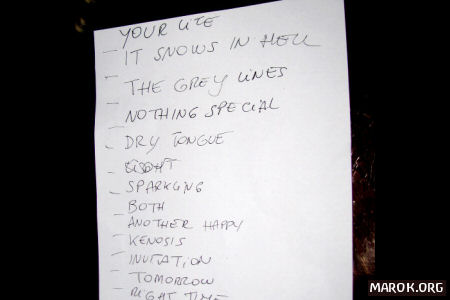 YOUR LIFE
IT SNOWS IN HELL
THE GREY LINES
NOTHING SPECIAL
DRY TONGUE
SPARKLING
BOTH
ANOTHER HAPPY
KENOSIS
INVITATION
TOMORROW
RIGHT TIME
MAROK.ORG